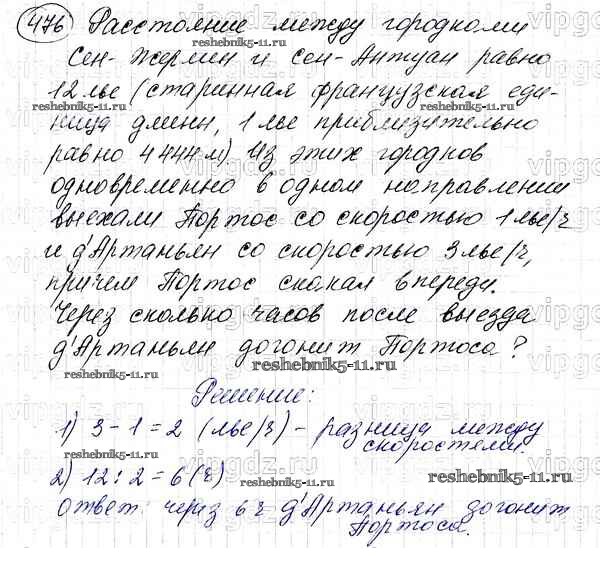 476 Расстояние между городками
Сен-Жермен и Сен-Антуан равно
12 лье (старинная французская еди-
ница длины, 1 лье приблизительно
равно 4 444 м) Из этих городков
одновременно в одном направлении
выехали Портос со скоростью 1 лье/ч
и д'Артаньян со скоростью 3 лье/ч,
причем Портос скакал впереди.
Через сколько часов после выезда
д'Артаньян догонит Портоса?
Решение:
1) 3 - 1 = 2 (лье/ч) - разница между
скоростями.
2) 12 : 2 = 6 (ч)
Ответ: через 6 ч д'Артаньян догонит
Портоса.
reshebnik5-11.ru
reshebnik5-11.ru
reshebnik5-11.ru
reshebnik5-11.ru
reshebnik5-11.ru
reshebnik5-11.ru
reshebnik5-11.ru
vipgdz.ru